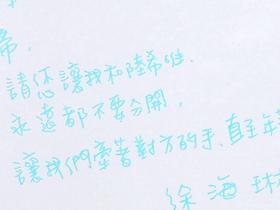 帝,
請您讓我和陸希唯.
永遠都不要分開,
讓我們牽著對方的手,直至年
徐海琳